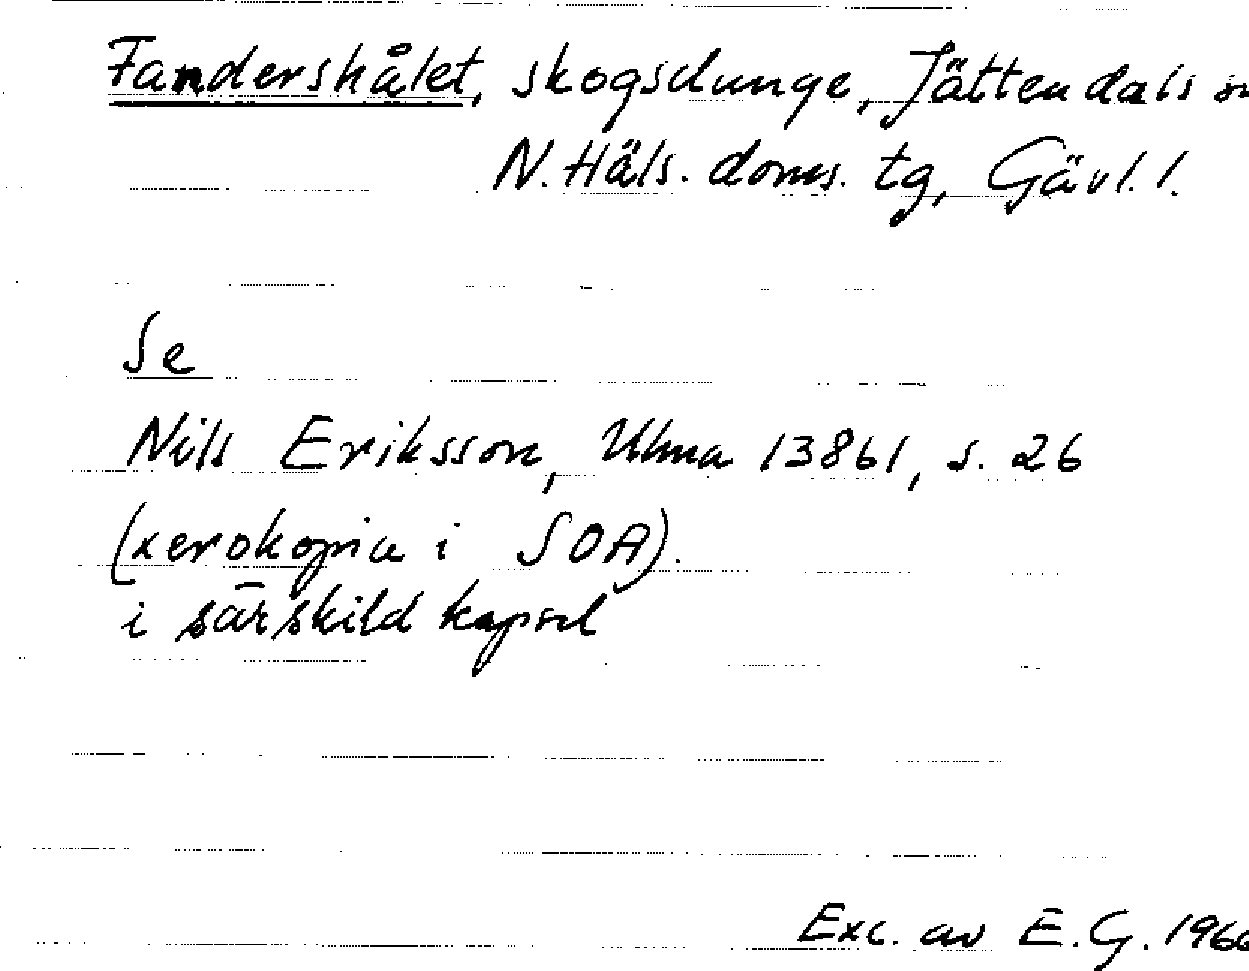 Fandershålet, skogsdunge, Jättendals sn
N. Häls. doms. tg, Gävl. l.
Se
Nils Eriksson, Ulma 13861, s. 26
(xerokopia i SOA).
i särskild kapsel
Exc. av E. G. 1966